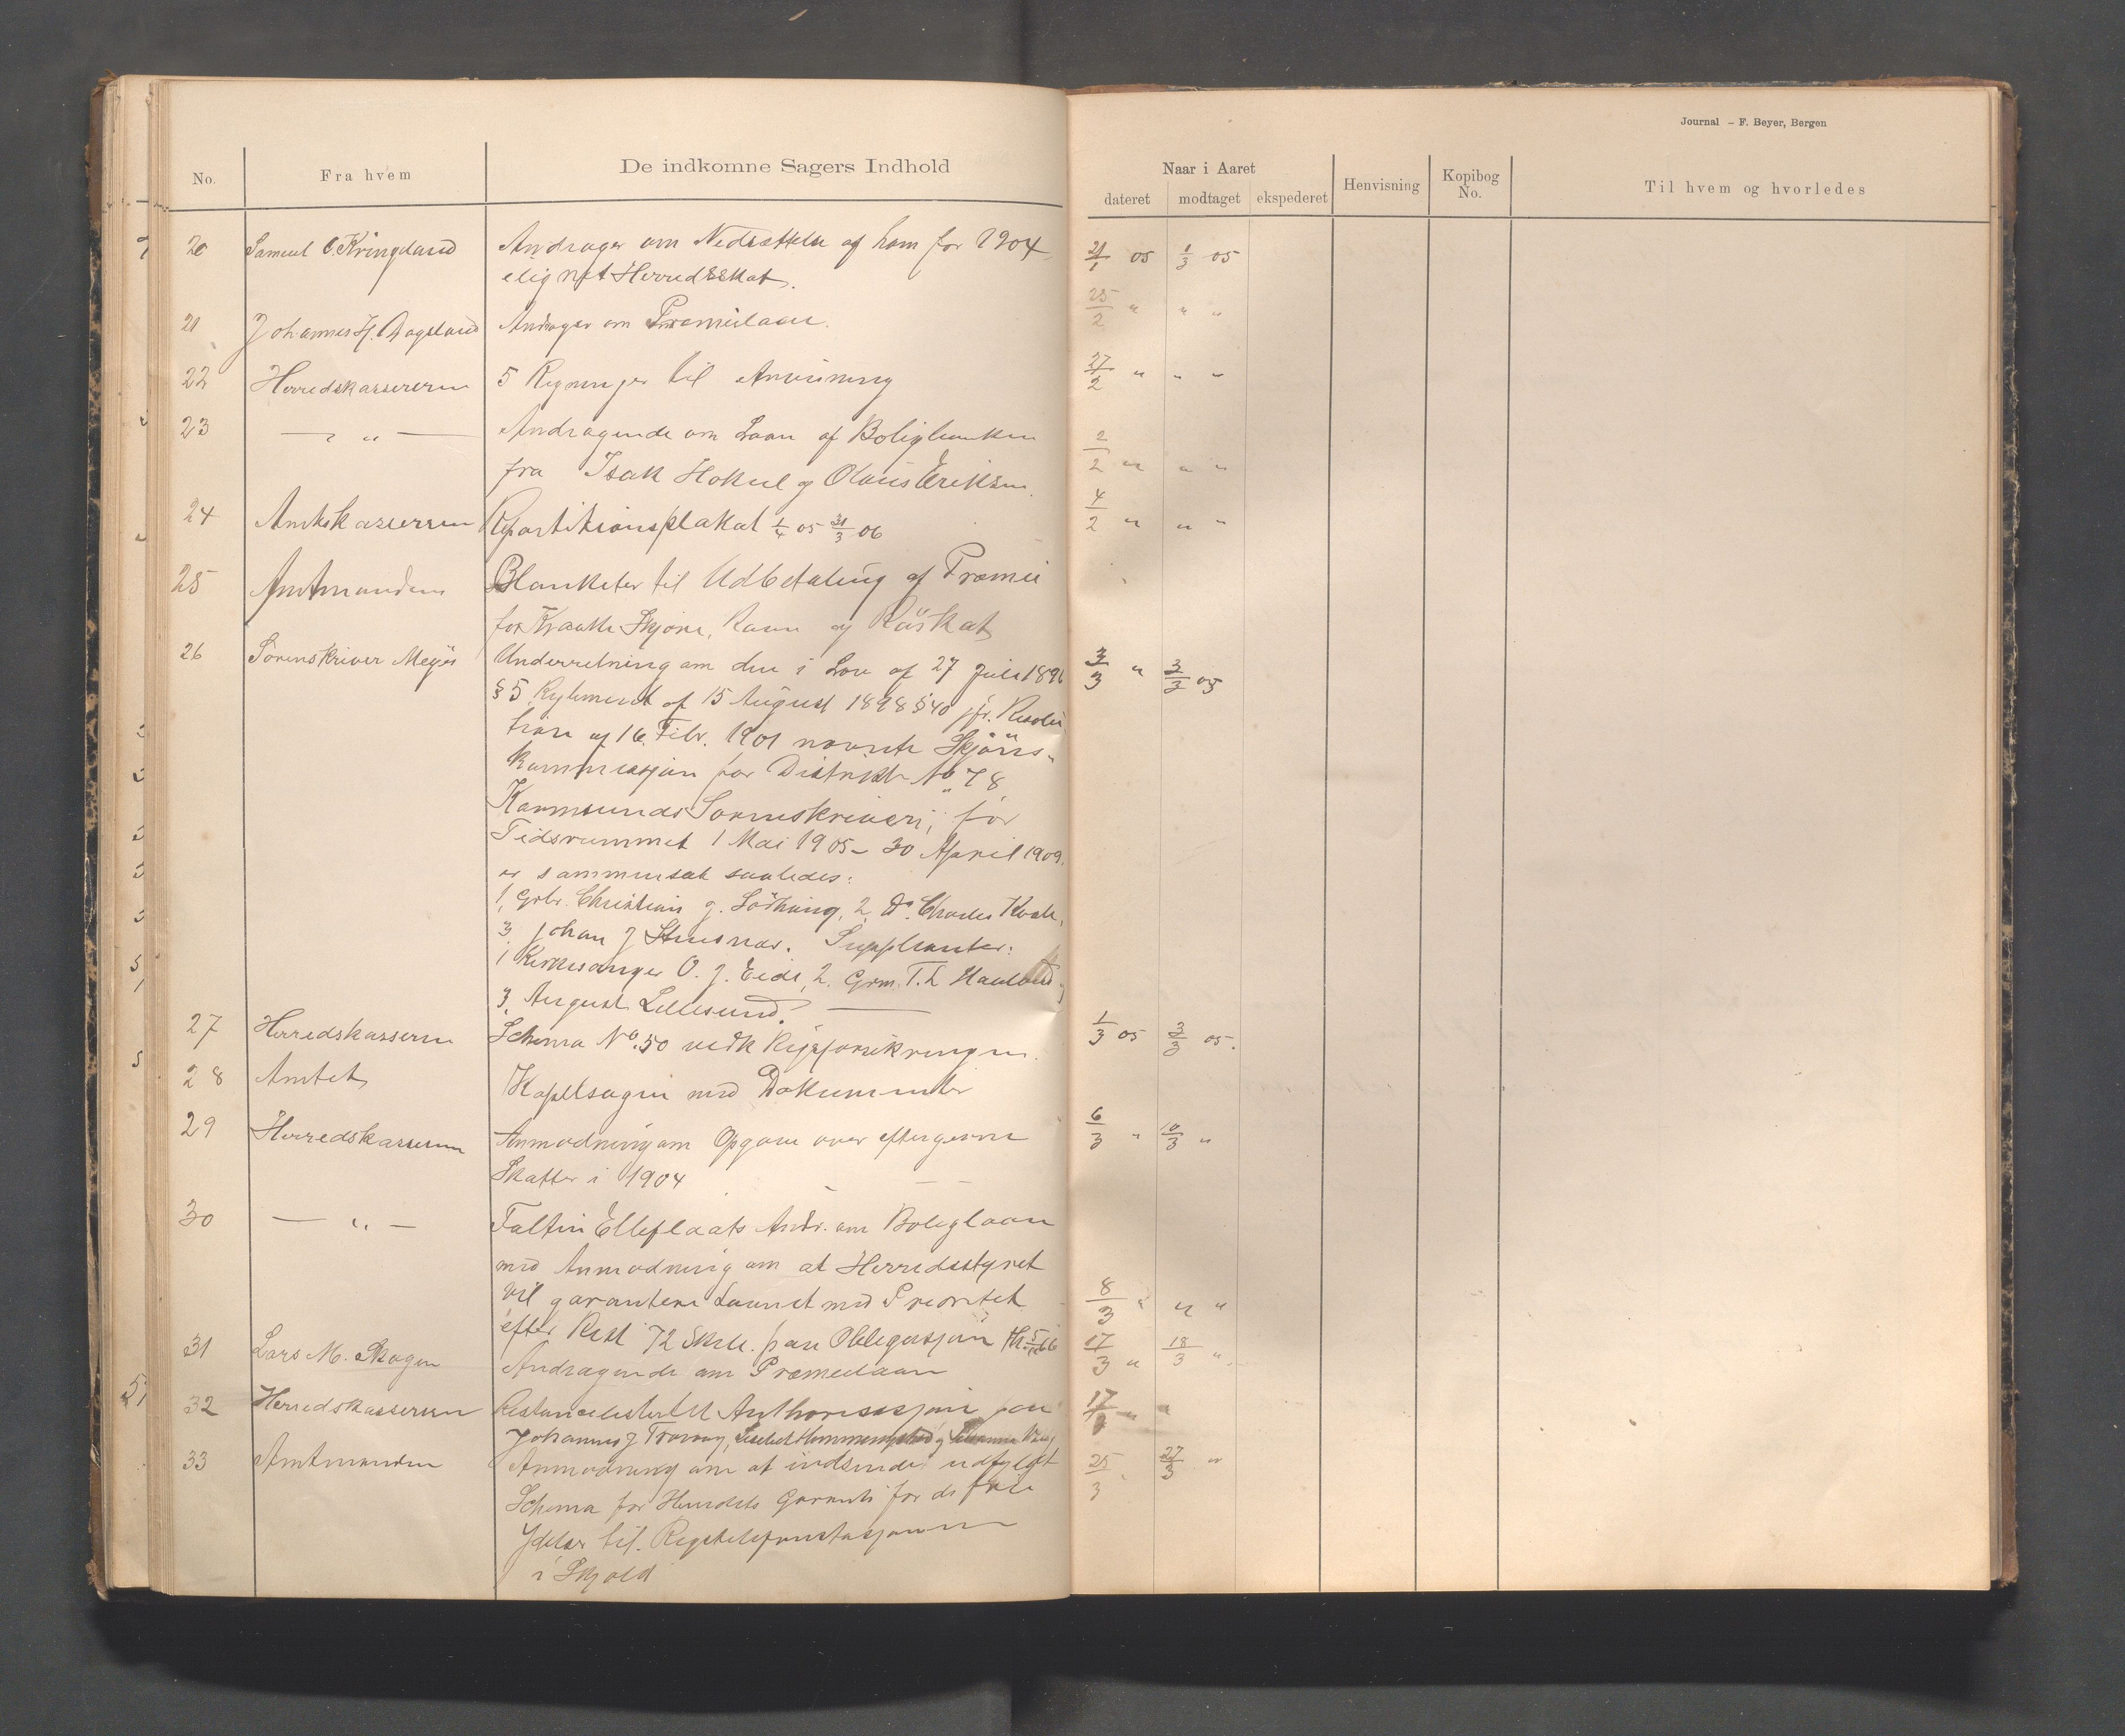 Journal – F. Beyer, Bergen
No. Fra hvem De indkomne Sagers Indhold Naar i Aaret Henvisning Kopibog No. Til hvem og hvorledes
dateret modtaget ekspederet
20 Samuel O. Kringeland Andrager om Nedsættelse af ham for 1904 21/1 05 1/3 05
elignet Herredsskat.
21 Johannes H. Dagsland Andrager om Præmielaan. 25/2 " " "
22 Herredskassereren 5 Regninger til Anvisning 27/2 " " "
23 — " — Andragende om Laan af Boligbanken
fra Isak Hokul og Olaus Eriksen. 2/2 " " "
24 Amtskassereren Repartitionsplakat 1/4 05 31/3 06 4/2 " " "
25 Amtmanden Blanketer til Udbetaling af Præmie
for Kraake Skjøre, Ravn og Røiskat
26 Sorenskriver Meyer Underretning om den i Lov af 27 Juli 1896 3/3 " 3/3 05
§ 5 Reglement af 15 August 1898 § 40 jfr. Resolu
tion af 16. Febr. 1901 nævnte Skjøns-
kommissjon for Distrikt No 78
Karmsunds Sorenskriveri, for
Tidsrummet 1 Mai 1905 – 30 April 1909.
er sammensat saaledes:
1, Grbr. Christian J. Sörhaug, 2, Do. Charles Kvale,
3, Johan J Stuesnæs. Supplianter:
1 Kirkesanger O. J. Eide, 2. Grm. T. L Hauland og
3, August Lillesund. —
27 Herredskassereren Schema No. 50 vedk Rigsforsikringen. 1/3 05 3/3 05.
28 Amtet Kapelsagen med Dokumenter
29 Herredskassereren Anmodning om Opgave over eftergivne 6/3 " 10/3 "
Skatter i 1904
30 — " — Faltin Elleflaats Andr. om Boliglaan
med Anmodning om at Herredsstyret
vil garantere Laanet med Prioritet 8/3 " " "
efter Rest 72 Skill. paa Obligasjon
31 Lars M. Skogen Andragende om Præmielaan 17/3 " 18/3 "
32 Herredskassereren Restanceliste til Authorisasjon paa 17/3 " "
Johannes J
33 Amtmanden Anmodning om at indsende udfyldt 25/3 27/3 "
Schema for Herredets Garanti for de frie
Ydelser til Rigstelefonstasjonen
i Skjold